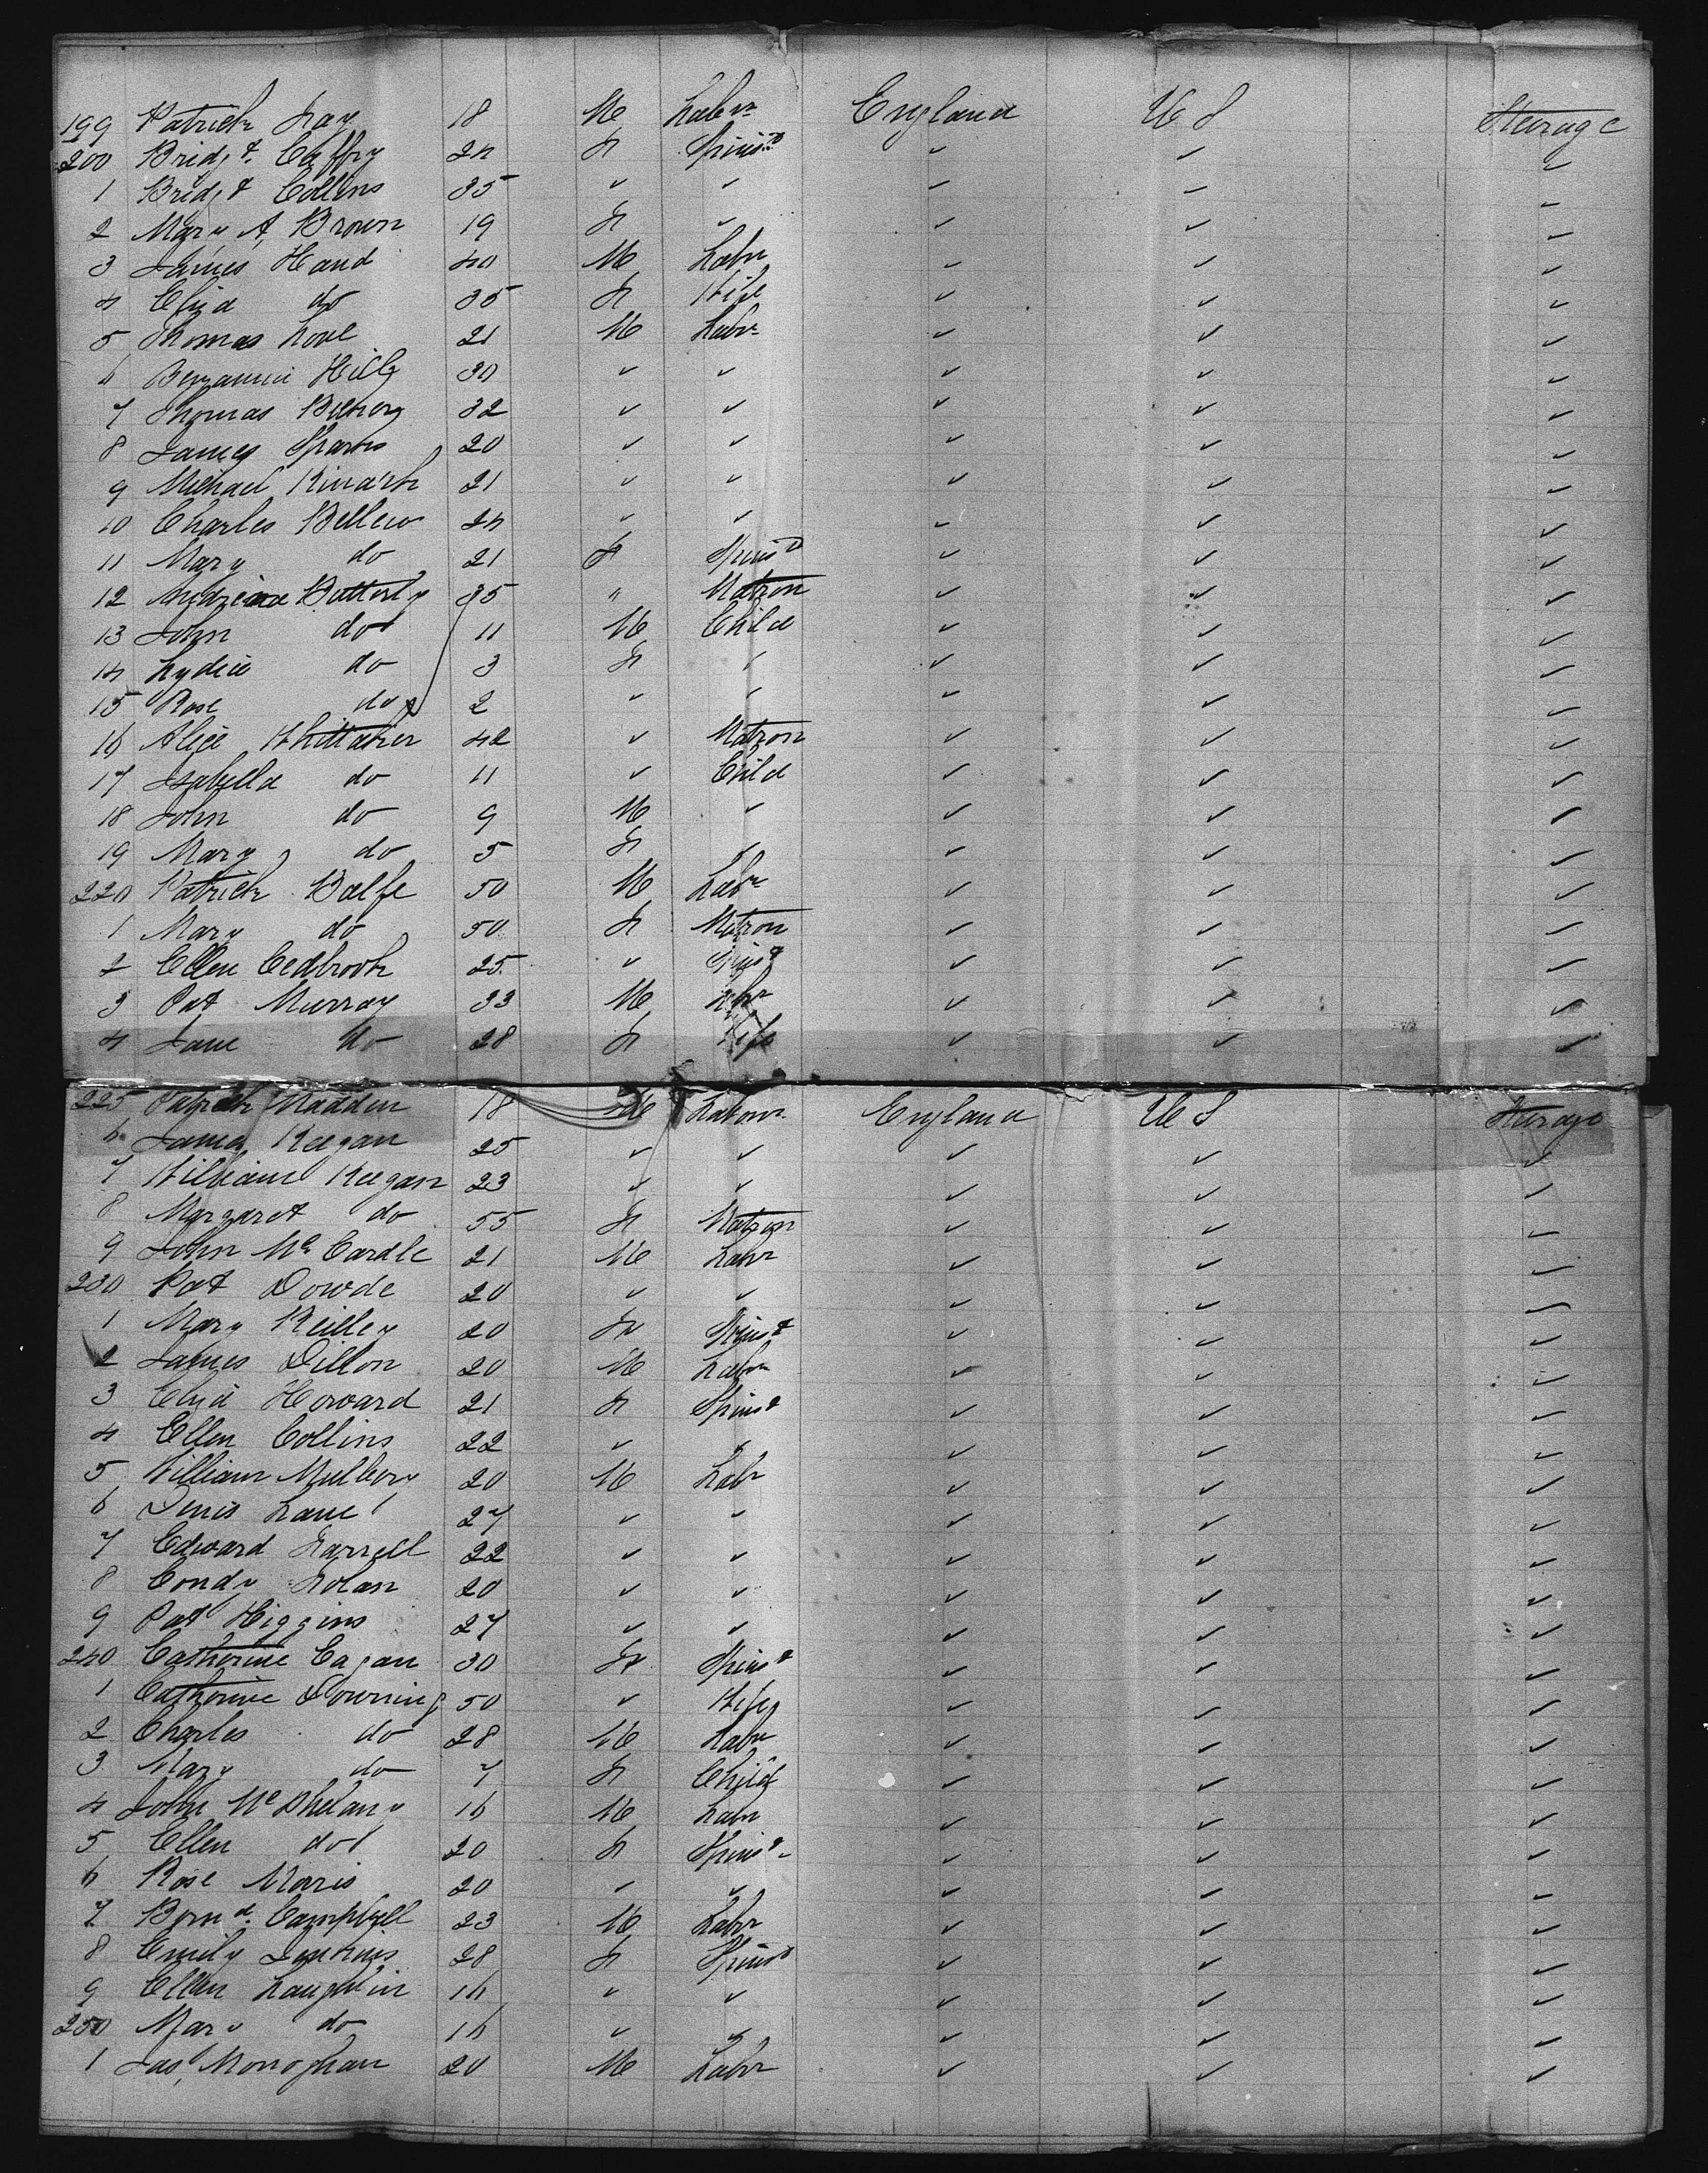 199 Patrick Fay 18 M Labr England U S Steerage
200 Bridgt. Caffry 24 F Spinst ✓ ✓ ✓
1 Bridgt Collins 35 ✓ ✓ ✓ ✓ ✓
2 Mary A Brown 19 F ✓ ✓ ✓ ✓
3 James Hand 40 M Labr ✓ ✓ ✓
4 Eliza do 35 F Wife ✓ ✓ ✓
5 Thomas Love 21 M Labr ✓ ✓ ✓
6 Benjamin Hill 30 ✓ ✓ ✓ ✓ ✓
7 Thomas 32 ✓ ✓ ✓ ✓ ✓
8 James Sparks 20 ✓ ✓ ✓ ✓ ✓
9 Michael 21 ✓ ✓ ✓ ✓ ✓
10 Charles Bellew 24 ✓ ✓ ✓ ✓ ✓
11 Mary do 21 F Spinst ✓ ✓ ✓
12 Butterly 35 " Matron ✓ ✓ ✓
13 John do 11 M Child ✓ ✓ ✓
14 Lydia do 3 F ✓ ✓ ✓ ✓
15 Rose do 2 ✓ ✓ ✓ ✓ ✓
16 Alice Whittaker 42 ✓ Matron ✓ ✓ ✓
17 Isabella do 11 ✓ Child ✓ ✓ ✓
18 John do 9 M ✓ ✓ ✓ ✓
19 Mary do 5 F ✓ ✓ ✓ ✓
220 Patrick Balfe 50 M Labr ✓ ✓ ✓
1 Mary do 50 F Matron ✓ ✓ ✓
2 Ellen Cedbrook 25 ✓ Spinst ✓ ✓ ✓
3 Pat Murray 33 M Labr ✓ ✓ ✓
4 Jane do 28 F Wife ✓ ✓ ✓
225 Patrick Madden 18 M Labour England U S Steerage
6 James Keegan 25 ✓ ✓ ✓ ✓ ✓
7 William Keegan 23 ✓ ✓ ✓ ✓ ✓
8 Margaret do 55 F Matron ✓ ✓ ✓
9 John Mc Cardle 21 M Labr ✓ ✓ ✓
230 Pat Dowde 20 ✓ ✓ ✓ ✓ ✓
1 Mary Reilley 20 F Spinst ✓ ✓ ✓
2 James Dillon 20 M Labr ✓ ✓ ✓
3 Eliza Howard 21 F Spinst ✓ ✓ ✓
4 Ellen Collins 22 ✓ ✓ ✓ ✓ ✓
5 William Mulbery 20 M Labr ✓ ✓ ✓
6 Denis Lane 27 ✓ ✓ ✓ ✓ ✓
7 Edward Farrell 22 ✓ ✓ ✓ ✓ ✓
8 Condy 20 ✓ ✓ ✓ ✓ ✓
9 Pat Higgins 27 ✓ ✓ ✓ ✓ ✓
240 Catherine Eagan 30 F Spinst ✓ ✓ ✓
1 Catherine Downing 50 ✓ Wife ✓ ✓ ✓
2 Charles do 28 M Labr ✓ ✓ ✓
3 Mary do 7 F Child ✓ ✓ ✓
4 John Mc 16 M Labr ✓ ✓ ✓
5 Ellen do 20 F Spinst ✓ ✓ ✓
6 Rose Maris 20 ✓ ✓ ✓ ✓ ✓
7 Bernd. Campbell 23 M Labr ✓ ✓ ✓
8 Emily Jenkins 28 F Spinst ✓ ✓ ✓
9 Ellen Laughlin 16 ✓ ✓ ✓ ✓ ✓
250 Mary do 16 ✓ ✓ ✓ ✓ ✓
1 Jas. Monoghan 20 M Labr ✓ ✓ ✓